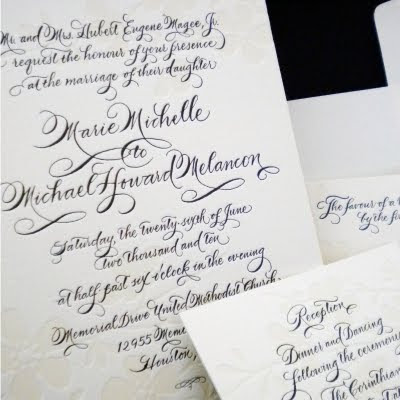 Mr. and Mrs. Hubert Eugene Magee, Jr.
request the honour of your presence
at the marriage of their daughter
Marie Michelle
to
Michael Howard Melancon
Saturday, the twenty-sixth of June
two thousand and ten
at half past six o'clock in the evening
Memorial Drive United Methodist Church
12955 Memo
Houston,
The favour of a
by the fi
Reception
Dinner and Dancing
following the ceremony
The Corinthian